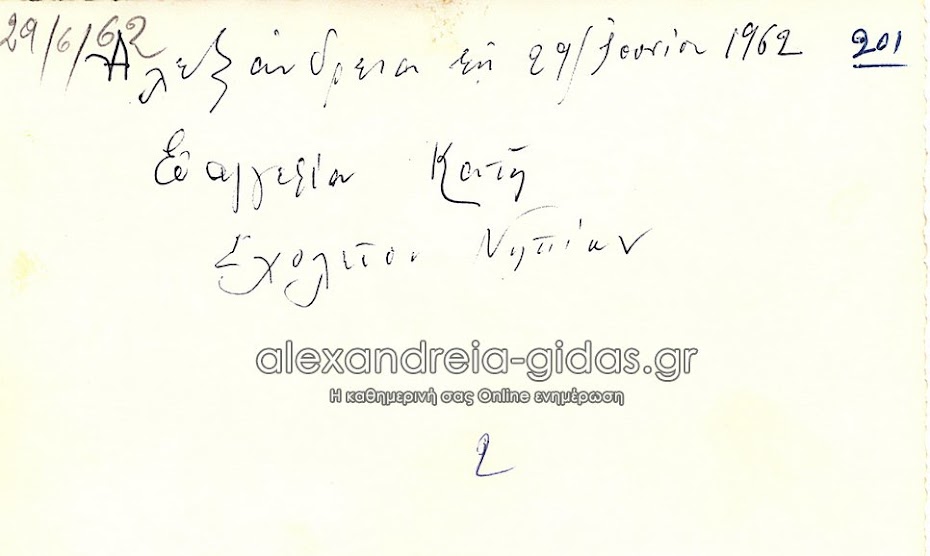 29/6/62
Αλεξάνδρεια τη 29/Ιουνίου 1962 201
Ευαγγελία Κατή
Σχολείου Νηπίων
alexandreia-gidas.gr
Η καθημερινή σας Online ενημέρωση
2